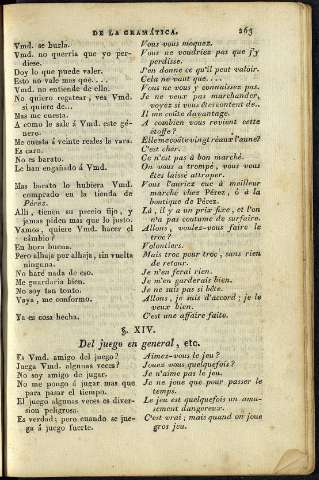 DE LA GRAMÁTICA. 263
Vmd. se burla. Vous vous moquez.
Vmd. no querría que yo per- Vous ne voudriez pas que j'y
diese. perdisse.
Doy lo que puede valer. J'en donne ce qu'il peut valoir.
Esto no vale mas que.... Cela ne vaut que....
Vmd. no entiende de ello. Vous ne vous y connaissez pas.
No quiero regatear, vea Vmd. Je ne veux pas marchander,
si quiere de... voyez si vous êtes content de...
Mas me cuesta. Il me coûte davantage.
A como le sale á Vmd. este gé- A combien vous revient cette
nero. étoffe?
Me cuesta á veinte reales la vara. Elle me coûte vingt réaux l'aune?
Es caro. C'est cher.
No es barato. Ce n'est pas à bon marché.
Le han engañado á Vmd. On vous a trompé, vous vous
êtes laissé attraper.
Mas barato lo hubiera Vmd. Vous l'auriez eue à meilleur
comprado en la tienda de marché chez Pérez, ó à la
Pérez. boutique de Pérez.
Alli, tienen su precio fijo, y Là, il y a un prix fixe, et l'on
jamas piden mas que lo justo. n'a pas coutume de surfaire.
Vamos, quiere Vmd. hacer el Allons, voulez-vous faire le
cámbio? troc?
En hora buena. Volontiers.
Pero alhaja por alhaja, sin vuelta Mais troc pour troc, sans rien
ninguna. de retour.
No haré nada de eso. Je n'en ferai rien.
Me guardaria bien. Je m'en garderais bien.
No soy tan tonto. Je ne suis pas si bête.
Vaya, me conformo. Allons, je suis d'accord; je le
veux bien.
Ya es cosa hecha. C'est une affaire faite.
§. XIV.
Del juego en general, etc.
Es Vmd. amigo del juego? Aimez-vous le jeu?
Juega Vmd. algunas veces? Jouez vous quelquefois?
No soy amigo de jugar. Je n'aime pas le jeu.
No me pongo á jugar mas que Je ne joue que pour passer le
para pasar el tiempo. temps.
El juego algunas veces es diver- Le jeu est quelquefois un amu-
sion peligrosa. sement dangereux.
Es verdad; pero cuando se jue- C'est vrai; mais quand on joue
ga á juego fuerte. gros jeu.